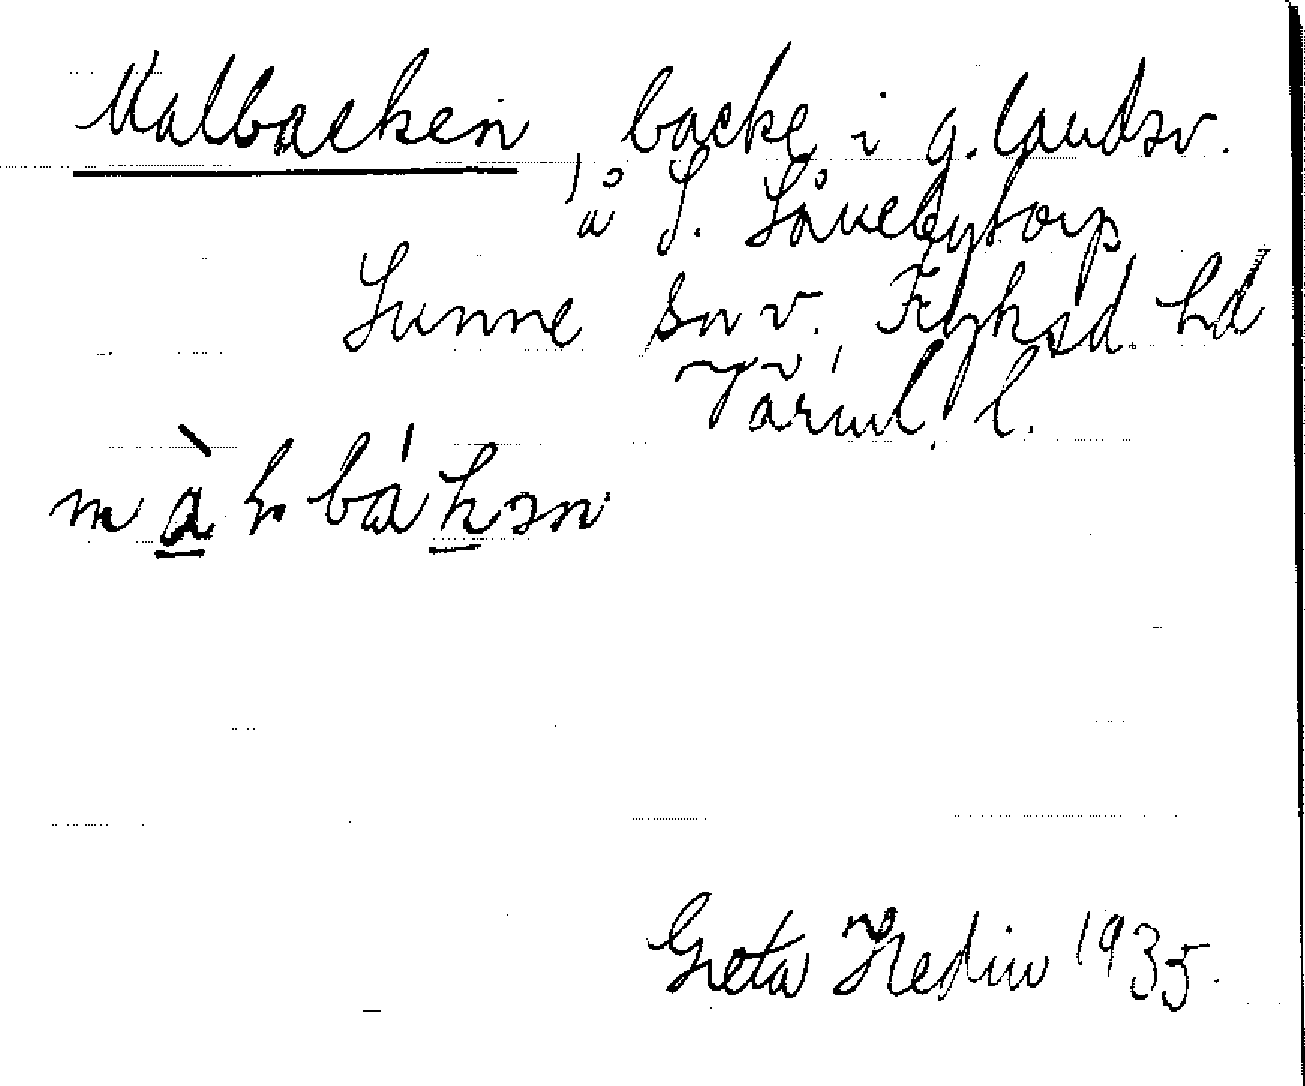 Malbacken, backe i g. landsv.
å S. Såneby torp
Sunne sn v. Fryksd. hd
Värml. l.
Greta Hedin 1935.